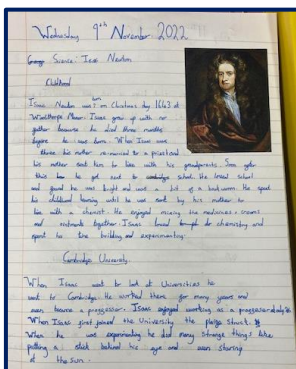 Wednesday 9th November 2022
Science: Isaac Newton
Childhood
Isaac Newton was born on Christmas day 1643 at
Woolthorpe Manor. Isaac grew up with no
father because he died three months
before he was born. When Isaac was
three his mother re-married to a priest and
his mother sent him to live with his grandparents. Soon after
this he got sent to school. He loved school
and found he was bright and was a bit of a bookworm. He spent
his childhood learning until he was sent by his mother to
live with a chemist. He enjoyed mixing the medicines, creams
and ointments together. Isaac loved chemistry and
spent his time building and experimenting.
Cambridge University
When Isaac went to look at Universities he
went to Cambridge. He worked there for many years and
even became a professor. Isaac enjoyed working as a
When Isaac first joined the University the plage struck.
When he was experimenting he did many strange things like
putting a stick behind his eye and even staring
at the sun.